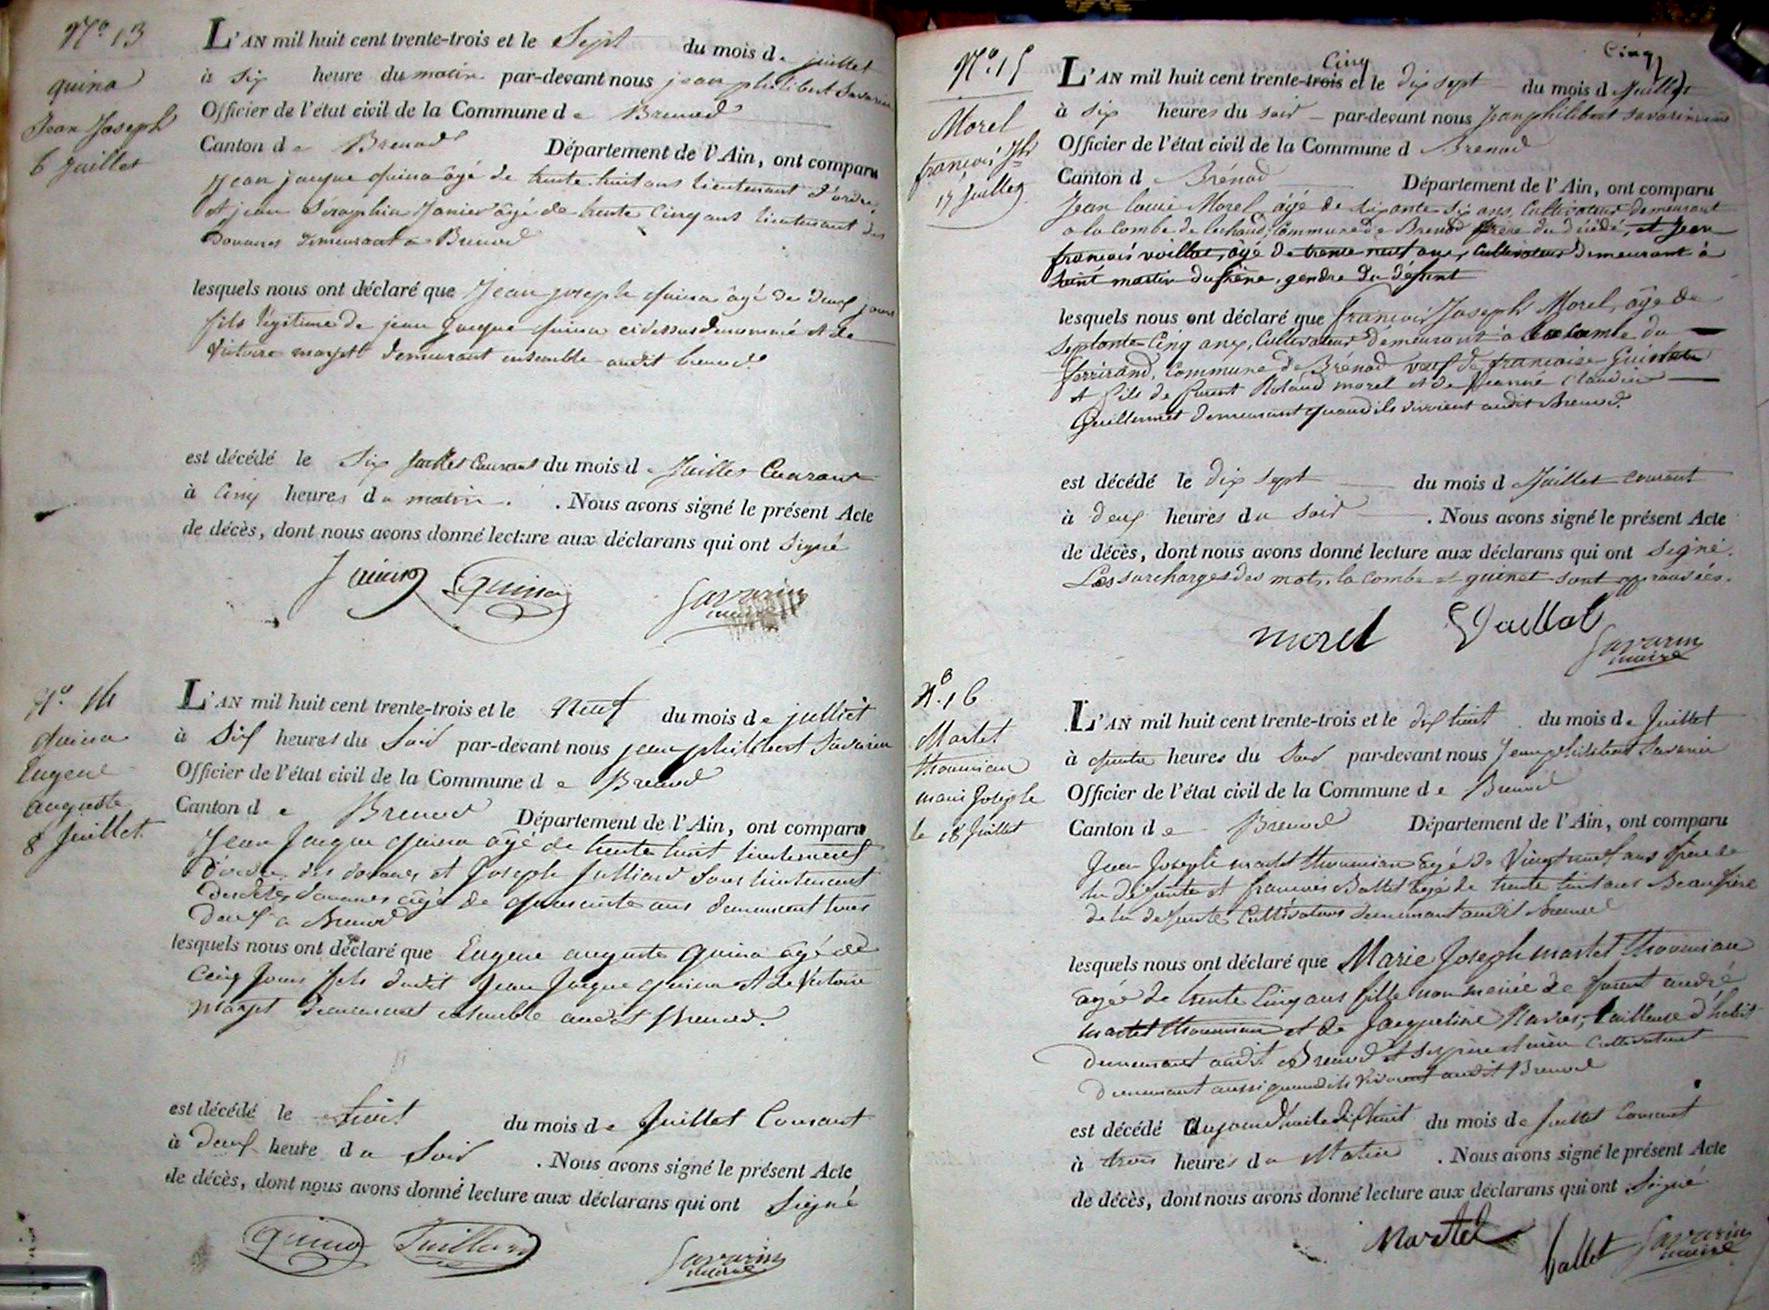 N.º 13
quina
Jean Joseph
6 Juillet
L'AN mil huit cent trente-trois et le Sept du mois de juillet
à Six heure du matin par-devant nous jean philibert Savarin
Officier de l'état civil de la Commune de Brenod
Canton de Brenod Département de l'Ain, ont comparu
Jean jacque quina âgé de trente huit ans lieutenant d'ordre
et jean Séraphin Janier âgé de trente Cinq ans lieutenant des
Douanes demeurant a Brenod
lesquels nous ont déclaré que Jean joseph quina âgé de deux jours
fils légitime de jean Jacque quina cidessus denommé et de
Victoire demeurant ensemble audit brenod.
est décédé le Six Juillet Courant du mois de Juillet Courant
à Cinq heures du matin. . Nous avons signé le présent Acte
de décès, dont nous avons donné lecture aux déclarans qui ont Signé
Quina Savarin
maire
N.º 14
quina
Eugene
auguste
8 Juillet.
L'AN mil huit cent trente-trois et le Neuf du mois de julliet
à Six heures du Soir par-devant nous jean philibert Savarin
Officier de l'état civil de la Commune de Brenod
Canton de Brenod Département de l'Ain, ont comparu
Jean Jacque quina âgé de trente huit lieutenent
d'ordre des douanes et Joseph Julliard Sous lieutenent
des douanes âgé de quarante ans demeurant tous
deux a Brenod
lesquels nous ont déclaré que Eugene auguste quina âgé de
Cinq Jours fils dudit Jean Jacque quina et de Victoire
demeurant ensemble audit Brenod.
est décédé le huit du mois de Juillet Courant
à Deux heure du Soir . Nous avons signé le présent Acte
de décès, dont nous avons donné lecture aux déclarans qui ont Signé
Quina Juillard Savarin
maire
N.º 15
Morel
françois Jh
17 Juillet
L'AN mil huit cent trente-trois Cinq et le dix sept du mois d Juillet Cinq
à Six heures du soir par-devant nous Jean philibert Savarin maire
Officier de l'état civil de la Commune d Brenod
Canton d Brénod Département de l'Ain, ont comparu
Jean Louis Morel, âgé de soixante six ans, Cultivateur demeurant
a la Combe de lechaud, Commune de Brenod frère du décédé, et Jean
françois vaillat, âgé de trente neuf ans, Cultivateur demeurant à
Saint martin du frêne, gendre du défunt
lesquels nous ont déclaré que françois Joseph Morel, âgé de
septante Cinq ans, Cultivateur demeurant à la Combe du
ferrirand, Commune de Brénod veuf de françoise Guinet
et fils de furent Roland morel et de Jeanne Claudine
Guillermet demeurant quand ils vivoient audit Brenod.
est décédé le dix sept du mois d Juillet courant
à deux heures du soir . Nous avons signé le présent Acte
de décès, dont nous avons donné lecture aux déclarans qui ont signé.
Les surcharges des mots, la combe et guinet sont approuvées.
morel Vaillat Savarin
maire
N.º 16
Martet
thoumian
marie Joseph
le 18 Juillet
L'AN mil huit cent trente-trois et le dix huit du mois de Juillet
à quatre heures du Soir par-devant nous Jean philibert Savarin
Officier de l'état civil de la Commune de Brenod
Canton de Brenod Département de l'Ain, ont comparu
Jean Joseph martet thoumian âgé de Vingt neuf ans frère de
la Défunte et francois Ballet âgé de trente huit ans Beaufrère
de la defunte Cultivateurs demeurant audit brenod
lesquels nous ont déclaré que Marie Joseph martet thoumian
agée de trente Cinq ans fille non mariée de furent andré
martet thoumian et de Jacqueline Navar, tailleuse d'habit
demeurant audit Brenod et ses père et mère Cultivateur
demeurant aussi quand ils vivoient audit Brenod
est décédé aujourd'hui le dix huit du mois de Juillet Courant
à trois heures du Matin . Nous avons signé le présent Acte
de décès, dont nous avons donné lecture aux déclarans qui ont Signé
Martel ballet Savarin
maire